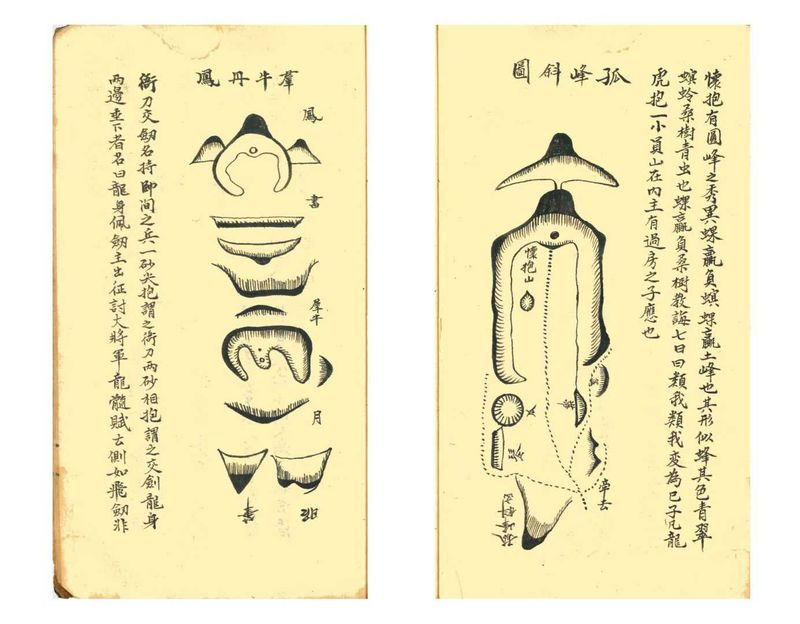 懷抱有圓峰之秀異螺蠃負螟螺蠃土峰也其形似蜂其色青翠
螟蛉桑樹青虫也螺蠃負桑樹教誨七日曰類我類我變為已子凡龍
虎抱一小員山在內主有過房之子應也
孤峰斜圖
懷抱山
帝去
羣牛丹鳳
鳳
書
犀牛
月
銜刀交劔名持即間之兵一砂尖抱謂之銜刀兩砂相抱謂之交劍龍身
兩邊垂下者名曰龍身佩劔主出征討大將軍龍髓賦云側如飛劔非